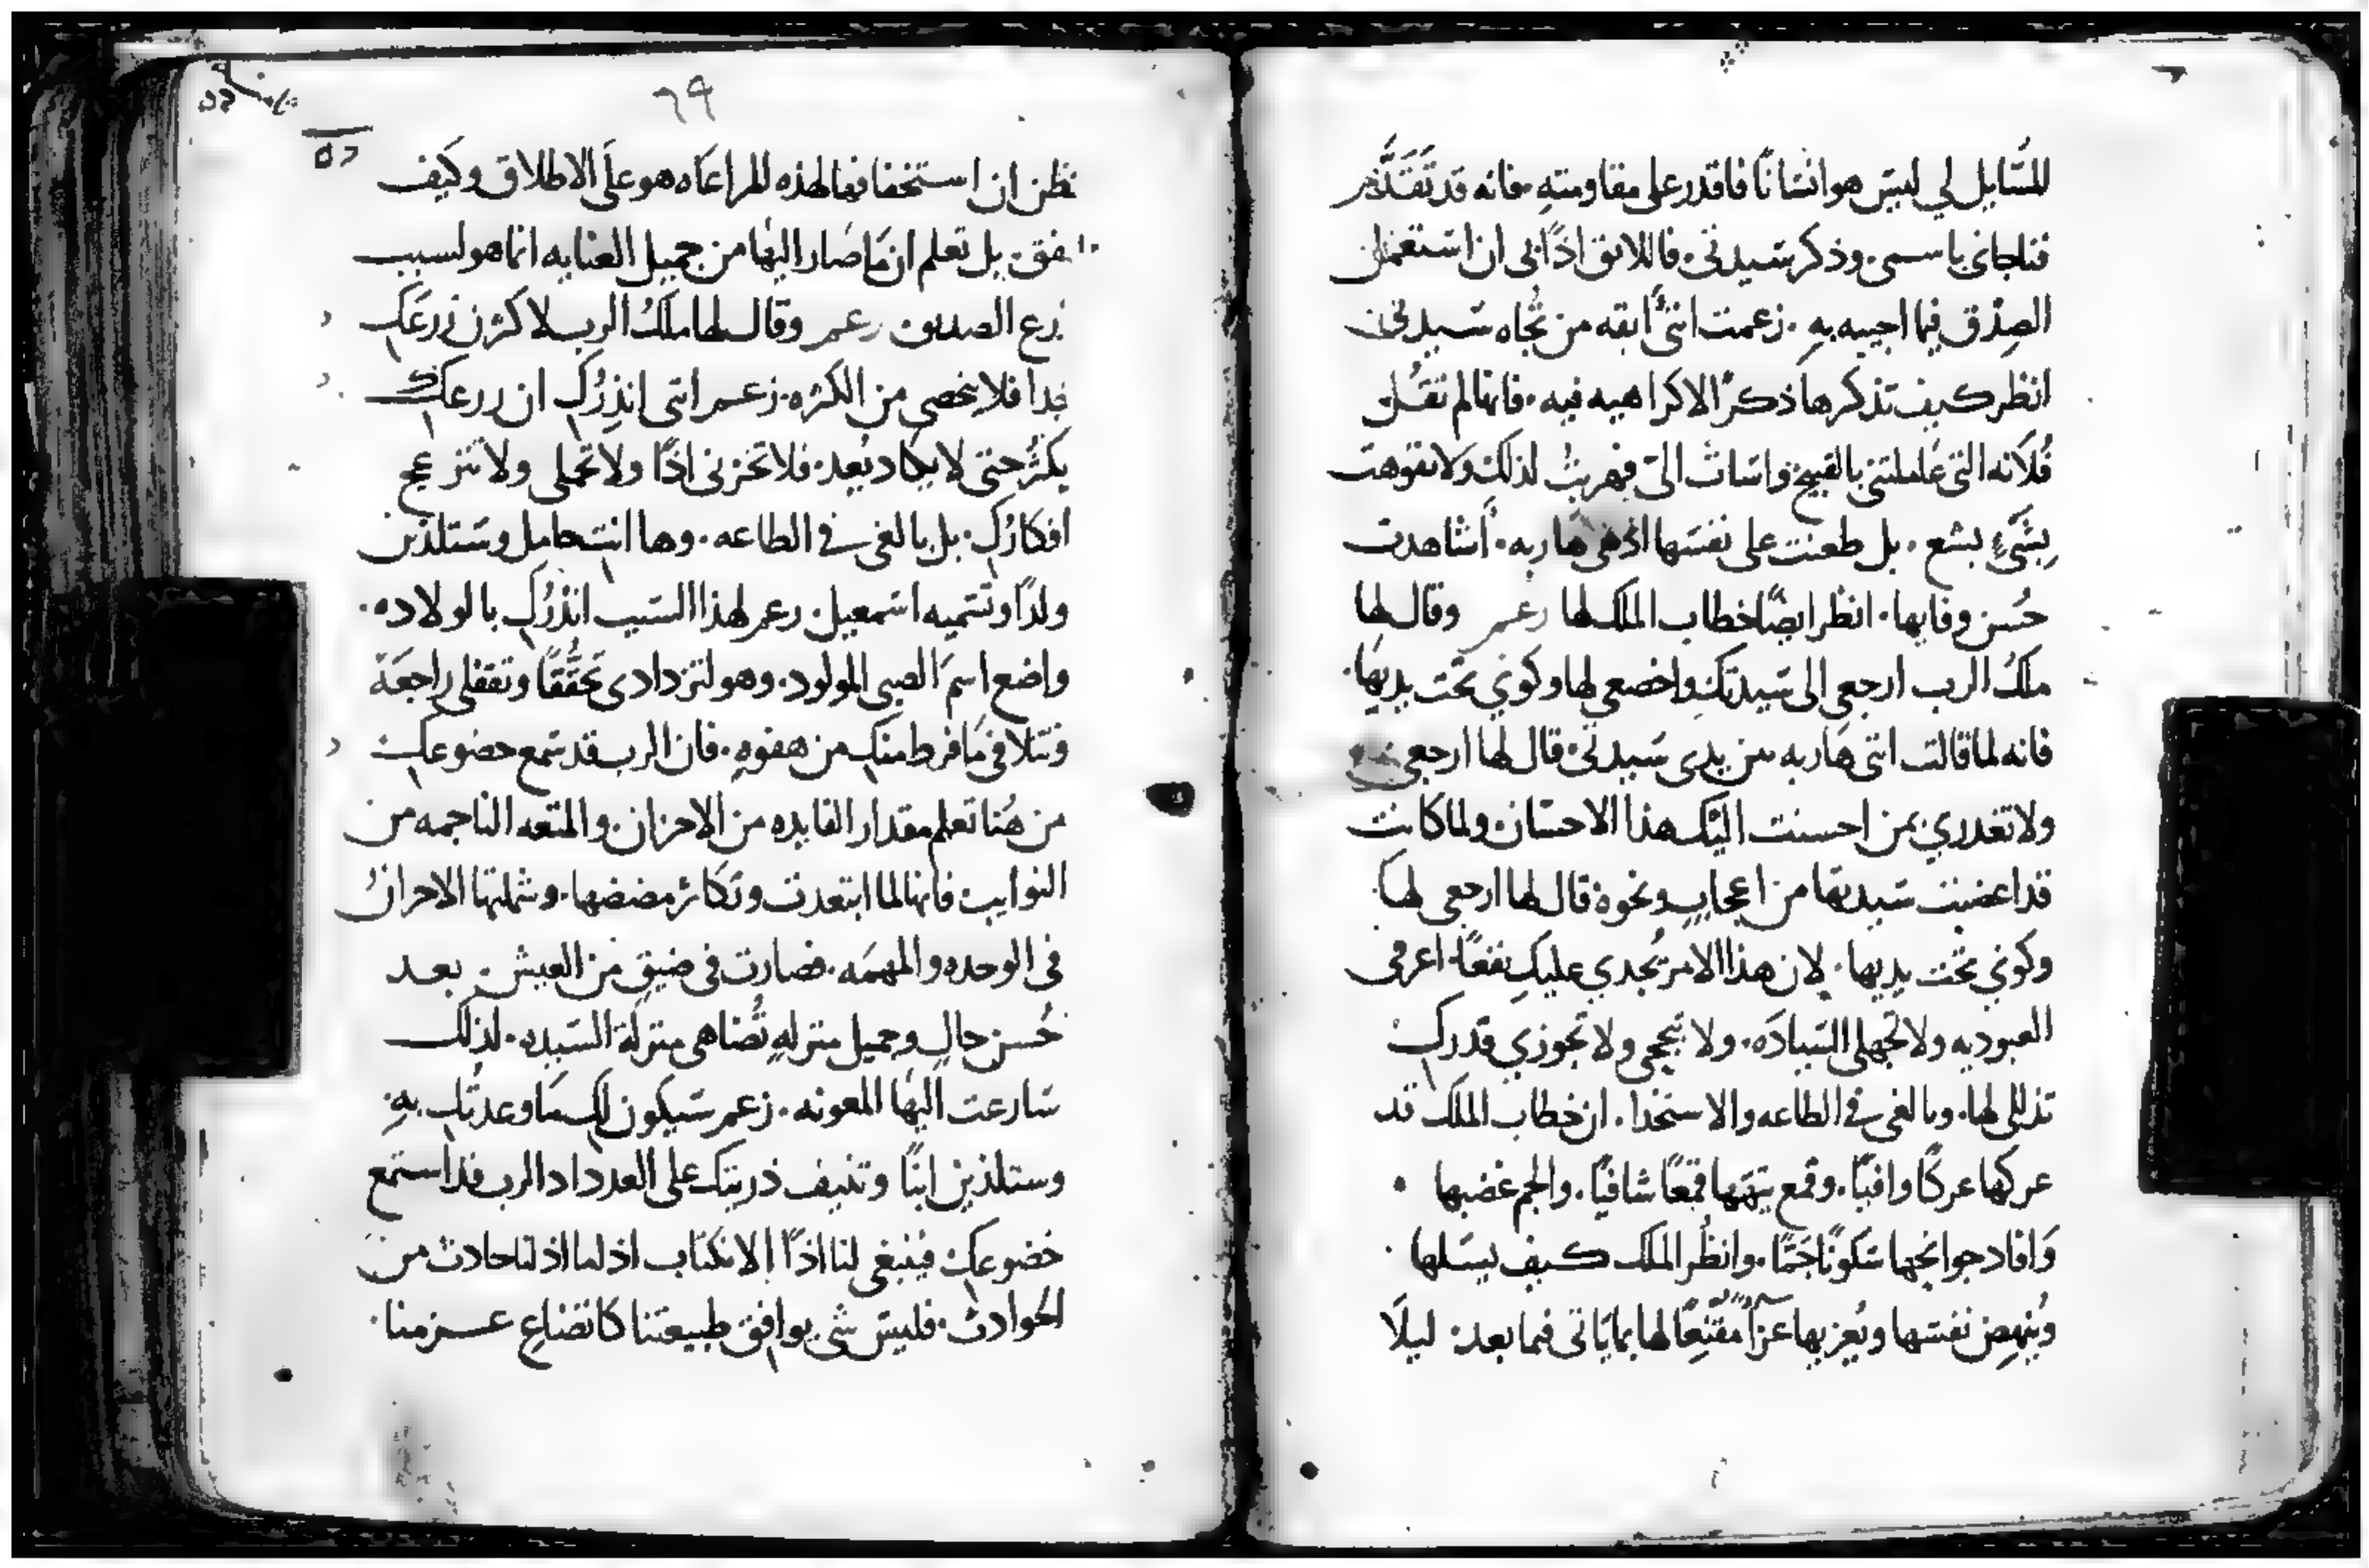 للسَّايل لي ليس هو انسانًا فاقدر على مقاومتهِ. فانه قد تَقَدَّمَ
فناجاني باسمي. وذكر سيدتي. فاللايق اذًا بي ان استعمل
الصِدْق فيما اجيبه بهِ. زعمت انني ابقه من تُجاه سيدتي
انظر كيف تذكرها ذكرًا لا كراهيه فيه. فانها لم تقُل
فُلانه التي عاملتني بالقبيح واسات اليّ فهربتُ لذلك ولا تفوهت
بِشيْءٍ بشع. بل طعنت على نفسها اذ هي هاربه. أشاهدت
حُسن وفايها. انظر ايضًا خطاب الملك لها زعم وقال لها
ملكُ الرب ارجعي الى سيدتكِ واخضعي لها وكوني تحت يديها.
فانه لما قالت انني هاربه من يدي سيدتي. قال لها ارجعي
ولا تغدري بمن احسنت اليْكِ هذا الاحسان ولما كانت
قد اغضبت سيدتها من اعجابٍ ونخوة قال لها ارجعي لها
وكوني تحت يديها. لان هذا الامر يُجدي عليكِ نفعًا. اعرفي
العبوديه ولا تجهلي السيادَه. ولا تبجحي ولا تجوزي قدركِ
تذللي لها. وبالغي في الطاعه والاستخذا. ان خطاب الملك قد
عركها عركًا وافيًا. وقمع تيهها قمعًا شافيًا. والجم غضبها
وَافاد جوانحها سكونًا جَمًّا. وانظُر الملك كيف يسلها
ويُنهِض نفسها ويُعزيها عزاً مقنِعًا لها بما ياتي فيما بعد. ليلَا
٦٩
٥٢
تظن ان استخفافها لهذه المراعاه هو على الاطلاق وكيف
اتفق. بل تعلم ان مَا صَار اليها من جميل العنايه انما هو لسبب
زرع الصديق زعم وقال لها ملكُ الرب لاكثرن زرعَكِ
جدا فلا يحصى من الكثره. زعم انني انذِرُكِ ان زرعكِ
يكثُر حتى لا يكاد يُعد. فلا تحزني اذًا ولا تحملي ولا تنزعج
افكارُكِ. بل بالغي في الطاعه. وها انتِ حامل وستلدين
ولدًا وتسميه اسمعيل. زعم لهذا السبب انذرُكِ بالولاده.
واضع اسمَ الصبي المولود. وهو لتزدادي تحقُّقًا وتقفلي راجعَة
وتتلافي مَا فرط منكِ من هفوهٍ. فان الرب قد سمع خضوعكِ
من هُنا تعلم مقدار الفايده من الاحزان. والمتعه الناجمه من
النوايب فانها لما ابتعدت وتكاثر مضضها. وشملتها الاحزانُ
في الوحده والمهمَه. فصارت في ضيقٍ من العيش. بعد
حُسن حالٍ وجميل منزلهٍ تُضاهي منزلَة السيده. لذلك
سَارعت اليها المعونه. زعم سيكون لكِ مَا وعدتُكِ بهِ.
وستلدين ابنًا وتنيف ذريتكِ على العدد اذ الرب قد استمع
خضوعكِ فينبغي لنا اذًا الانكتاب اذ لما اذلنا حادث من
الحوادث. فليس شي يوافق طبيعتنا كاتضاعِ عزمنا.